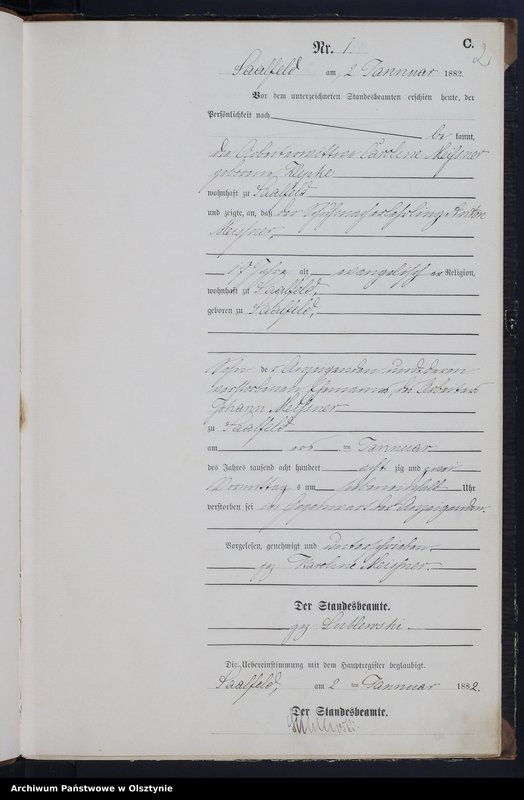 Nr. 1.
C.
2
Saalfeld am 2 Januar 1882.
Vor dem unterzeichneten Standesbeamten erschien heute, der
Persönlichkeit nach
be kannt,
die Arbeiterwittwe Caroline Meißner
geborene
wohnhaft zu Saalfeld
und zeigte an, daß der Schuhmacherlehrling Anton
Meißner,
17 Jahre alt evangelisch er Religion,
wohnhaft zu Saalfeld,
geboren zu Saalfeld,
Sohn der Anzeigenden und deren
verstorbenen Ehemannes, des Arbeiters
Johann Meißner
zu Saalfeld
am ten Januar
des Jahres tausend acht hundert acht zig und zwei
Vormittag s um Uhr
verstorben sei in Gegenwart der Anzeigenden.
Vorgelesen, genehmigt und unterschrieben
gez Karoline Meißner.
Der Standesbeamte.
gez Lublewski
Die Uebereinstimmung mit dem Hauptregister beglaubigt.
Saalfeld, am 2 ten Januar 1882.
Der Standesbeamte.
Lublewski
Archiwum Państwowe w Olsztynie